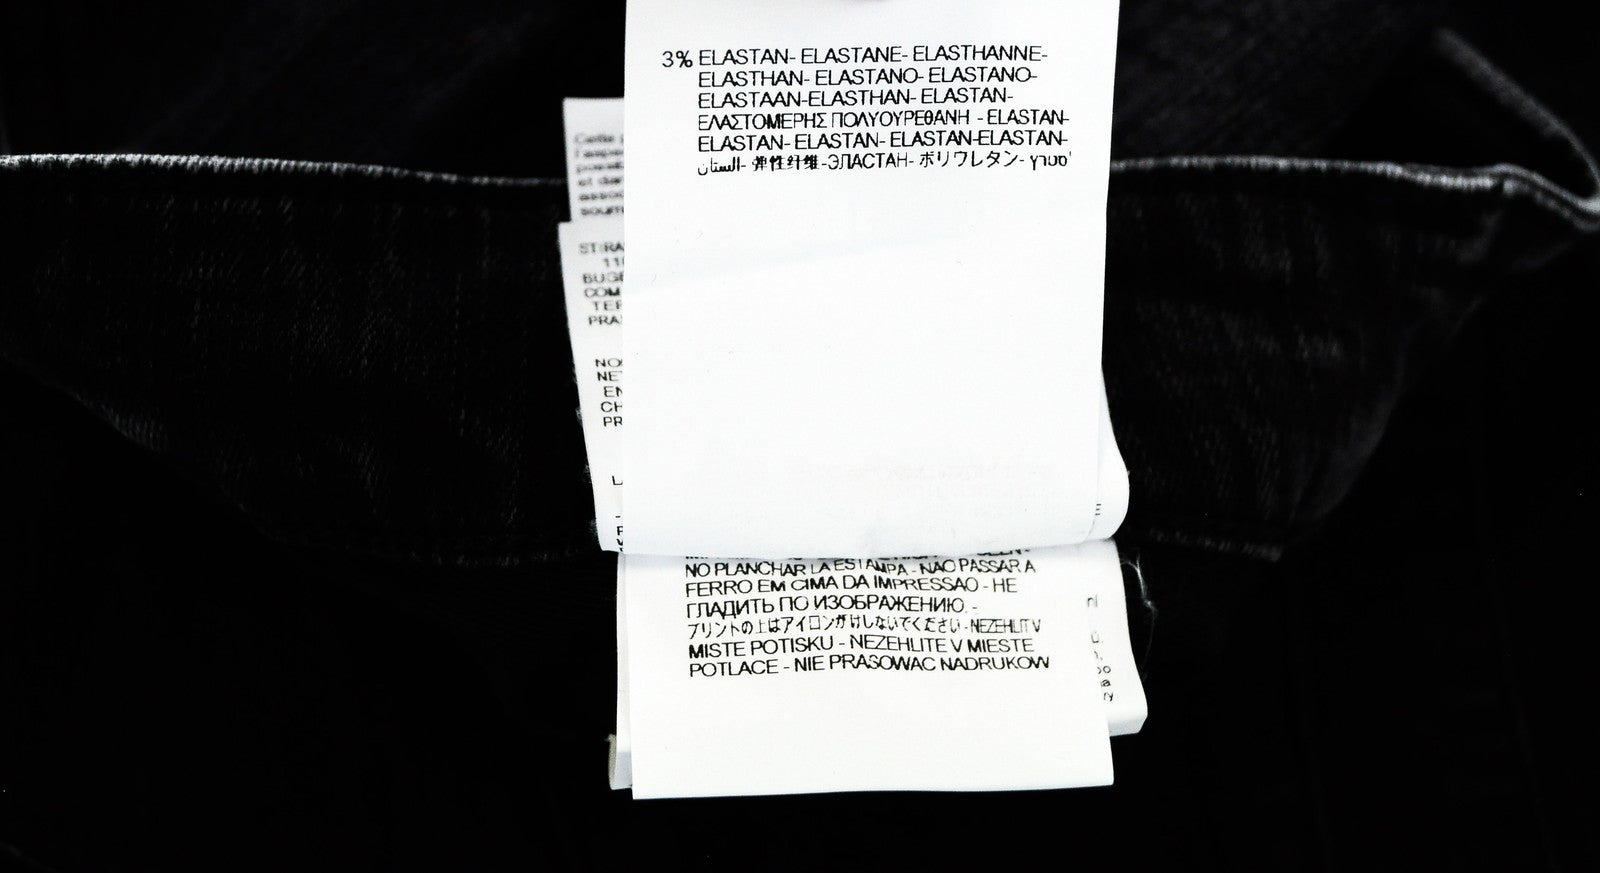 3% ELASTAN- ELASTANE- ELASTHANNE-
ELASTHAN- ELASTANO- ELASTANO-
ELASTAAN-ELASTHAN- ELASTAN-
ΕΛΑΣΤΟΜΕΡΗΣ ΠΟΛΥΟΥΡΕΘΑΝΗ - ELASTAN-
ELASTAN- ELASTAN- ELASTAN-ELASTAN-
الستان- 弹性纤维 -ЭЛАСТАН- ポリウレタン-
ST RA
11
COM
TEF
PRA
NO
NE
EN
CH
PR
NO PLANCHAR LA ESTAMPA - NAO PASSAR A
FERRO EM CIMA DA IMPRESSAO - НЕ
ГЛАДИТЬ ПО ИЗОБРАЖЕНИЮ. -
プリントの上はアイロンがけしないでください - NEZEHLIT V
MISTE POTISKU - NEZEHLITE V MIESTE
POTLACE - NIE PRASOWAC NADRUKOW